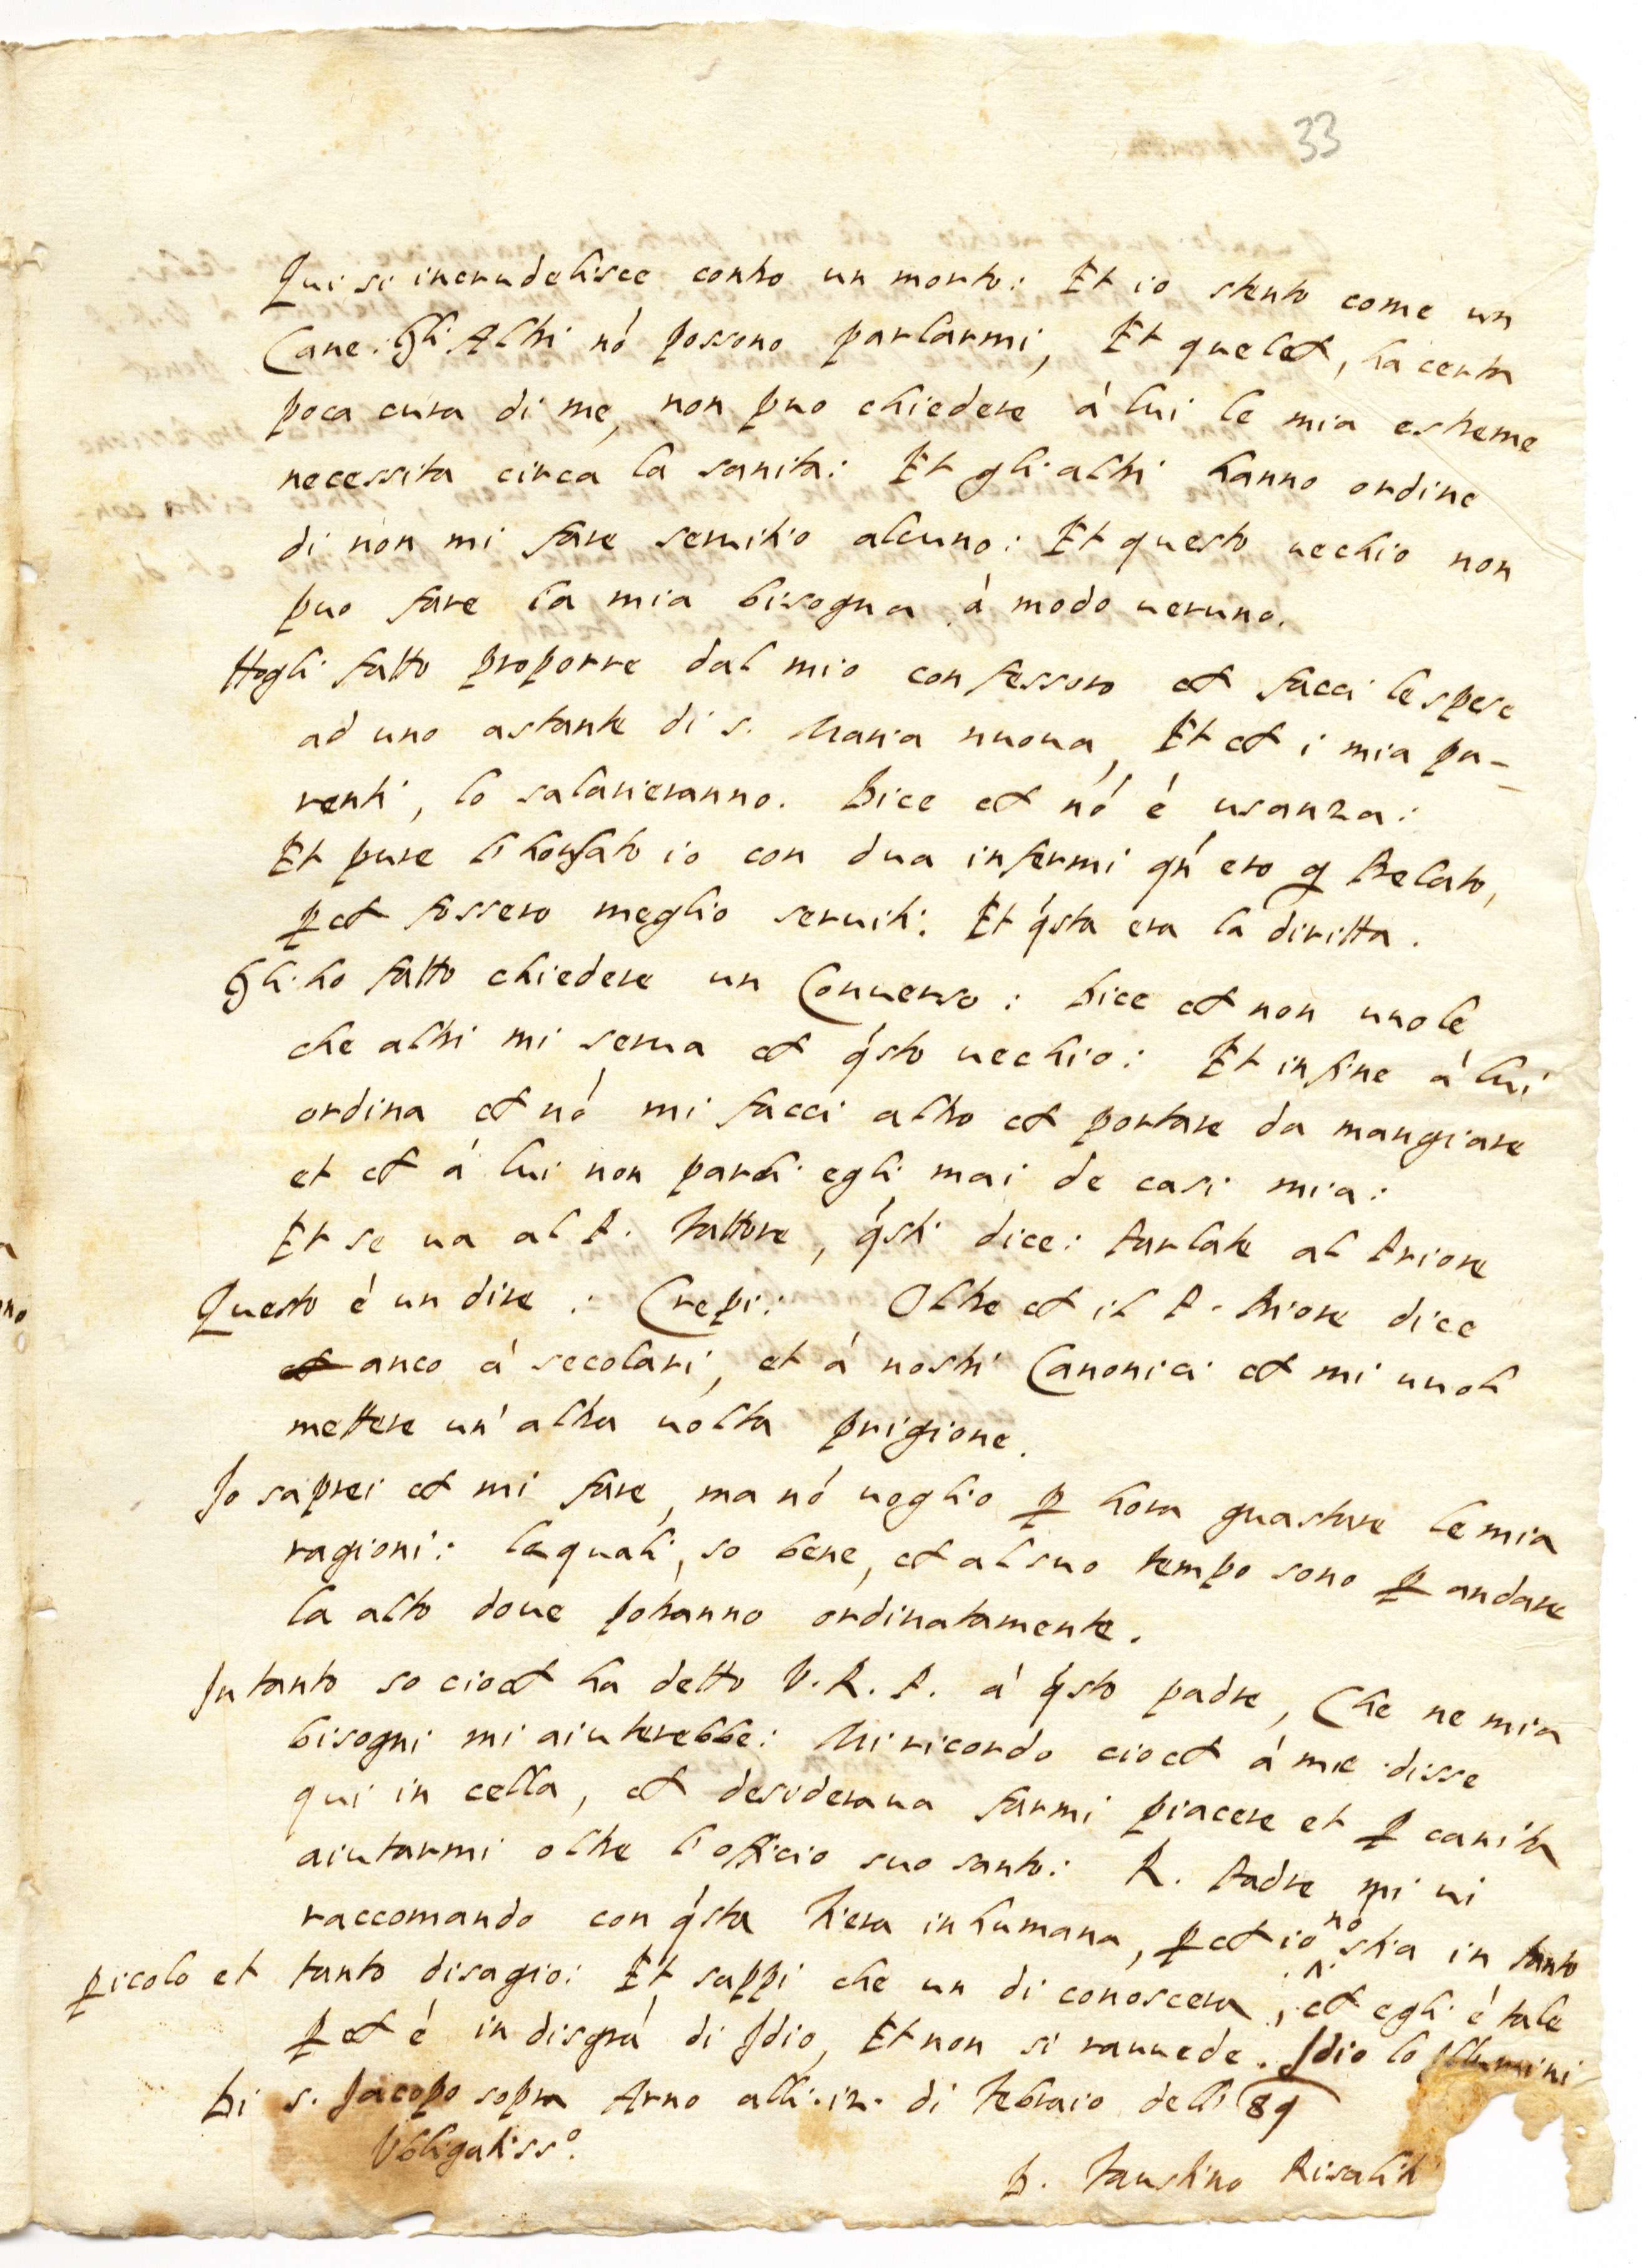 33
Qui si incrudelisce contro un morto: Et io stento come un
Cane. Gli Altri nó possono parlarmi, Et quel ch, ha certa
poca cura di me, non puo chiedere á lui le mia estreme
necessita circa la sanita: Et gli altri hanno ordine
di non mi fare seruitio alcuno: Et questo uecchio non
puo fare la mia bisogna á modo ueruno.
Hogli fatto proporre dal mio confessoro ch facci le spese
ad uno astante di s. Maria nuoua, Et ch i mia pa-
renti, lo salarieranno. Dice ch nó é usanza:
Et pure l'ho usato io con dua infermi qń ero q Prelato,
ꝑch fossero meglio seruiti: Et q́sta era la diritta.
Gli ho fatto chiedere un Conuerso: Dice ch non uuole
che altri mi serua ch q́sto uecchio: Et in fine á lui
ordina ch nó mi facci altro ch portare da mangiare
et ch á lui non parli egli mai de casi mia:
Et se ua al P. Fattore, q́sti dice: Parlate al Priore
Questo é un dire: Crepi: Oltre ch il P. Priore dice
anco á secolari, et á nostri Canonici ch mi uuol
mettere un'altra uolta prigione.
Jo saprei ch mi fare, ma nó uoglio ꝑ hora guastare le mia
ragioni: le quali, so bene, ch al suo tempo sono ꝑ andare
la alto doue potranno ordinatamente.
Jn tanto so cioch ha detto V. R. P. á q́sto padre, Che ne mia
bisogni mi aiuterebbe: Mi ricordo cioch á me disse
qui in cella, ch desideraua farmi piacere et ꝑ carita
aiutarmi oltre l'officio suo santo: R. Padre mi ui
raccomando con q́sta Fiera inhumana, ꝑch io nó stia in tanto
ꝑicolo et tanto disagio: Et sappi che un di conoscera, ch egli é tale
ꝑch é in disgrá di Jdio, Et non si rauuede. Jdio lo illumini
Di s. Jacopo sopra Arno alli .12. di Febraio dell' 89
Vbligatiss.º
D. Faustino Risaliti